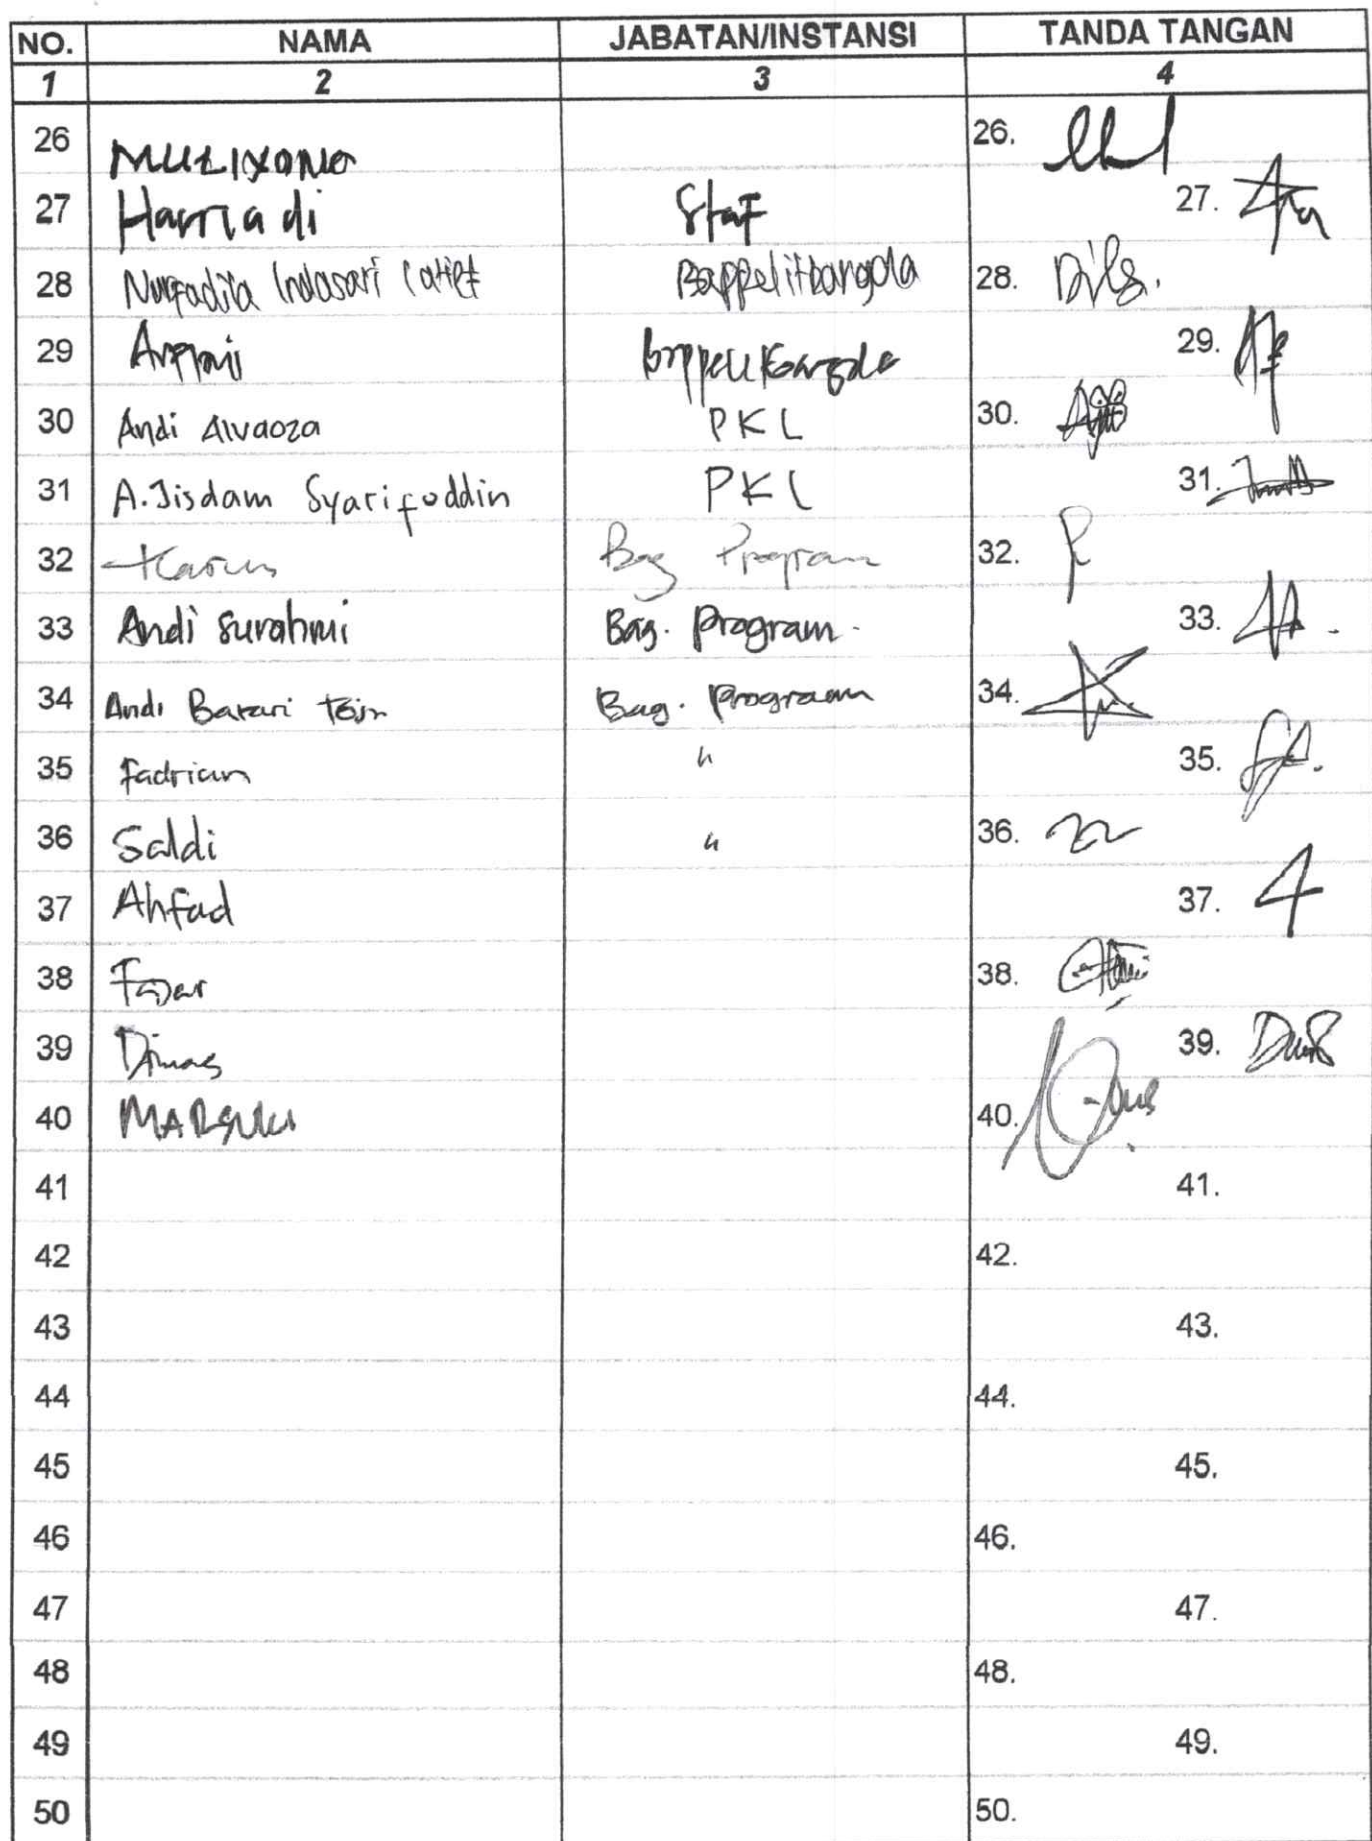 NO. NAMA JABATAN/INSTANSI TANDA TANGAN
1 2 3 4
26 26.
27 Harriadi Staf 27.
28 Nurfadila Indasari Latief Bappelitbangda 28.
29 29.
30 Andi Alvaoza PKL 30.
31 A.Jisdam Syarifuddin PKL 31.
32 Bag Program 32.
33 Andi Surahmi Bag. Program. 33.
34 Andi Barari Bag. Program 34.
35 Fadrian " 35.
36 Saldi " 36.
37 Ahfad 37.
38 Fajar 38.
39 Dimas 39.
40 MARSUKI 40.
41 41.
42 42.
43 43.
44 44.
45 45.
46 46.
47 47.
48 48.
49 49.
50 50.